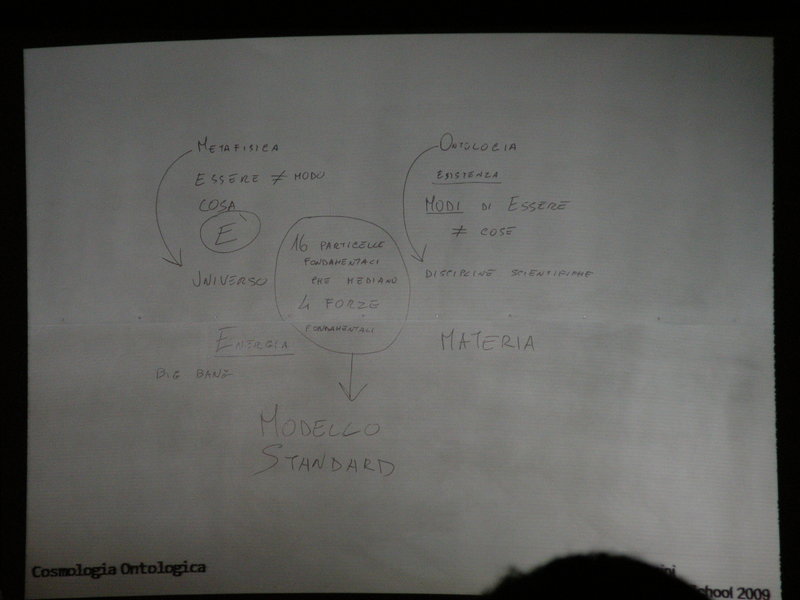 METAFISICA
ESSERE ≠ MODO
COSA
È
UNIVERSO
ENERGIA
BIG BANG
16 PARTICELLE
FONDAMENTALI
CHE MEDIANO
4 FORZE
FONDAMENTALI
MODELLO
STANDARD
ONTOLOGIA
ESISTENZA
MODI DI ESSERE
≠ COSE
DISCIPLINE SCIENTIFICHE
MATERIA
Cosmologia Ontologica
School 2009